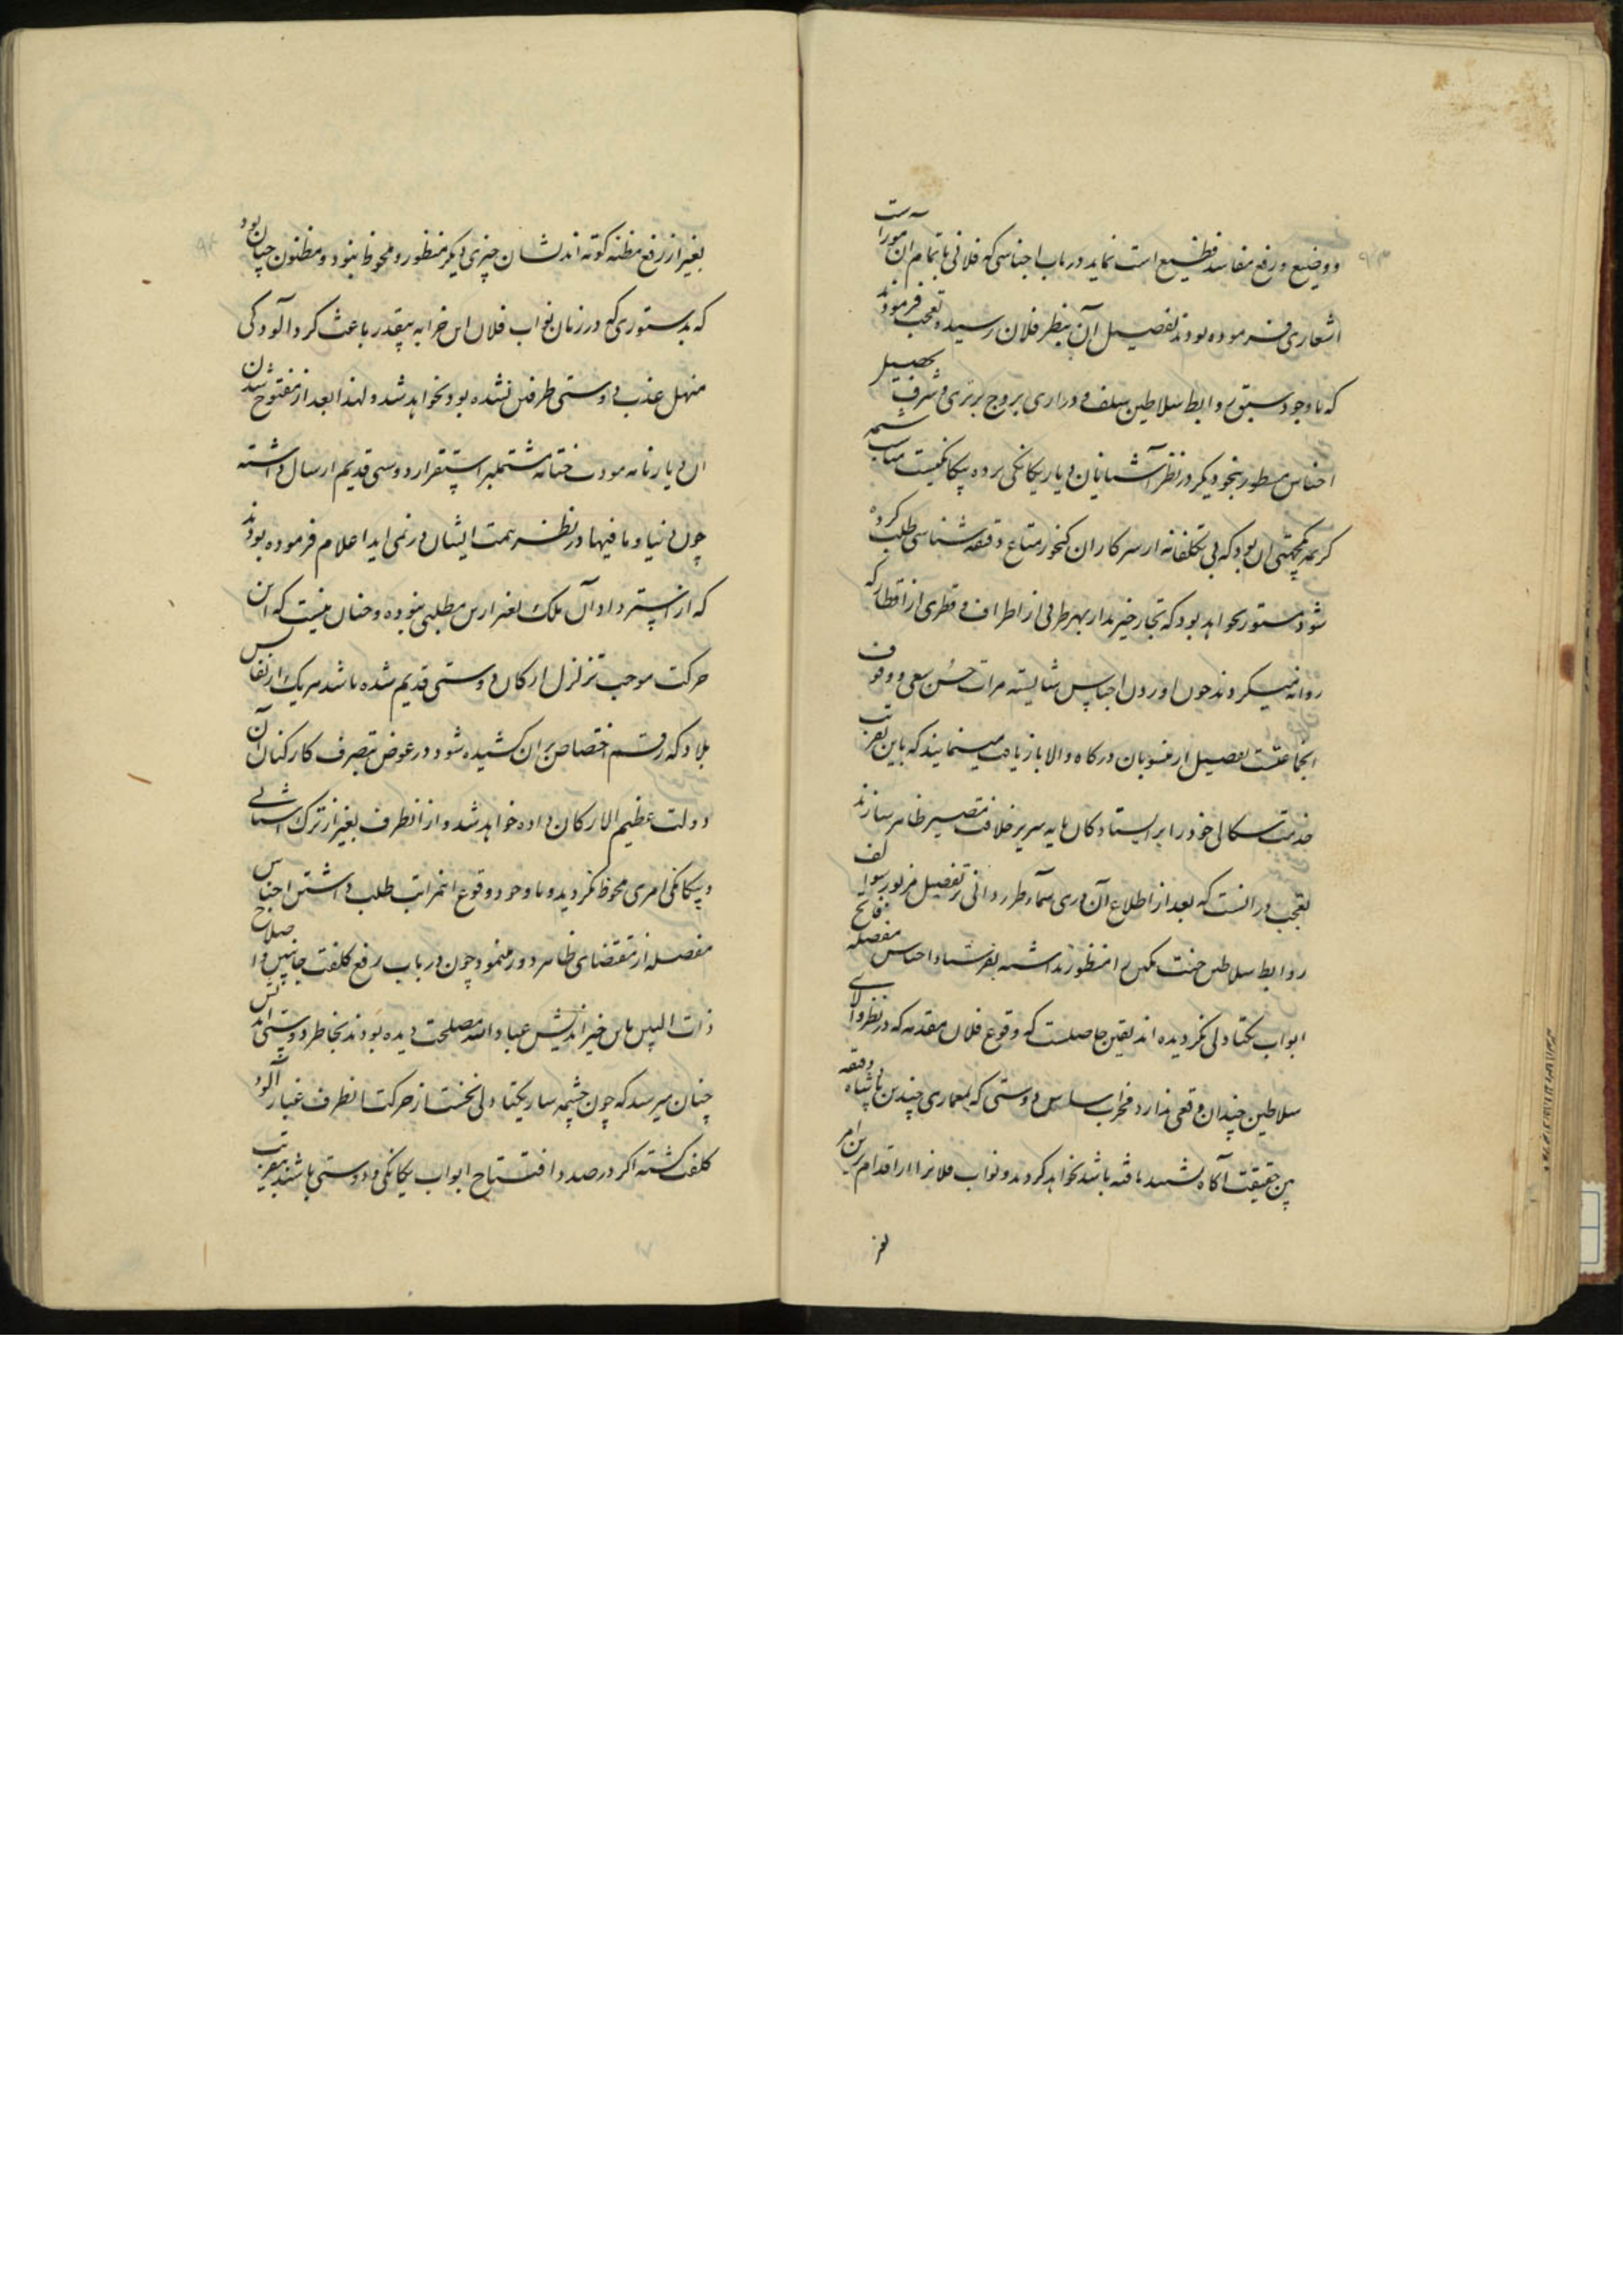 و وضیع و رفع مفاسد فظیع است نماید در باب اجناسی که فلانی باتمام ان مورا است
اشعاری فرموده بودند تفصیل آن بنظر فلان رسیده تعجب فرمودند
که با وجود سبق روابط سلاطین سلف و دراری بروج برتری و شرف بحصیل
اجناس مسطور بنحو دیگر در نظر آشنایان دیار یکانکی پرده بیکانکیست مناسب شمه
کریمه یکجهتی ان بود که بی تکلفانه از سرکاران کنجور متاع دقیقه شناسی طلب کرده
شود مستور نخواهد بود که تجار خیرمدار بهر طرفی از اطراف و قطری از اقطار که
روانه میکردند چون اوردن اجناس شایسته مراتب حسن سعی و وقوف
انجماعتست تفصیل از منسوبان درکاه والا بازیافت مینمایند که باین تقریب
خدمت سکالی خود را بر ایستادکان پایه سریر خلافت مصیر ظاهر سازند
تعجب در انست که بعد از اطلاع آن دری سماء بر تفصیل مزبور سوالف
روابط سلاطین جنت مکین را منظور نداشته بفرستاد اجناس مفصله فاتح
ابواب یکتادلی نکردیده اند یقین حاصلست که وقوع فلان مقدمه که در نظر والای
سلاطین چندان وقعی ندارد مخرب اساس دوستی که بمعماری چندین پادشاه دقیقه
بین حقیقت آکاه تشیید یافته باشد نخواهد کردید و نواب فلانرا از اقدام براین امر
بغیر از رفع مظنه کوته اندیشان چیزی دیکر منظور و ملحوظ نبود و مظنون چنان بود
که بدستوری که در زمان نواب فلان این خرابه بیقدر باعث کرد آلودکی
منهل عذب دوستی طرفین نشده بود نخواهد شد و لهذا بعد از مفتوح شدن
ان دیار نامه مودت ختامه مشتملبر استقرار دوستی قدیم ارسال داشته
چون دنیا و ما فیها در نظر همت ایشان در نمی اید اعلام فرموده بودند
که از استرداد آن ملک بغیر ازین مطلبی نبوده و چنان نیست که این
حرکت موجب تزلزل ارکان دوستی قدیم شده باشد هر یک از نفایس
بلاد که رقم اختصاص بر ان کشیده شود در عوض بتصرف کارکنان آن
دولت عظیم الارکان داده خواهد شد و از انطرف بغیر از ترک اشنائی
و بیکانکی امری ملحوظ نکردید و با وجود وقوع اینمراتب طلب داشتن اجناس
مفصله از مقتضای ظاهر دور مینمود چون در باب رفع کلفت جانبین و اصلاح
ذات البین باین خیراندیش عباد الله مصلحت دیده بودند بخاطر دوستی اندیش
چنان میرسد که چون چشمه سار یکتادلی نخست از حرکت انطرف غبار آلود
کلفت کشته اکر در صدد افتتاح ابواب یکانکی و دوستی باشند بتقریب